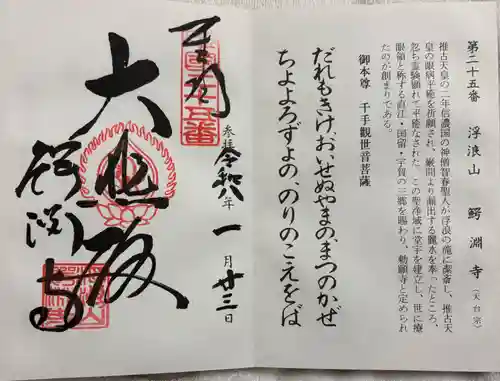 第二十五番　浮浪山　鰐淵寺（天台宗）
推古天皇の二年信濃国の神僧智春聖人が浮浪の滝に潔斎し、推古天
皇の眼病平癒を祈願され、巌間より湧出する麗水を奉ったところ、
忽ち霊験顕れて平癒なされた。この聖浄域に堂宇を建立し、世に療
眼領と称する直江・国留・宇賀の三郷を賜わり、勅願寺と定められ
たのが創まりである。
御本尊　千手観世音菩薩
だれもきけおいせぬやまのまつのかぜ
ちよよろずよの、のりのこえをば
奉拝
参拝 令和八年 一月廿三日
大悲殿
鰐淵寺